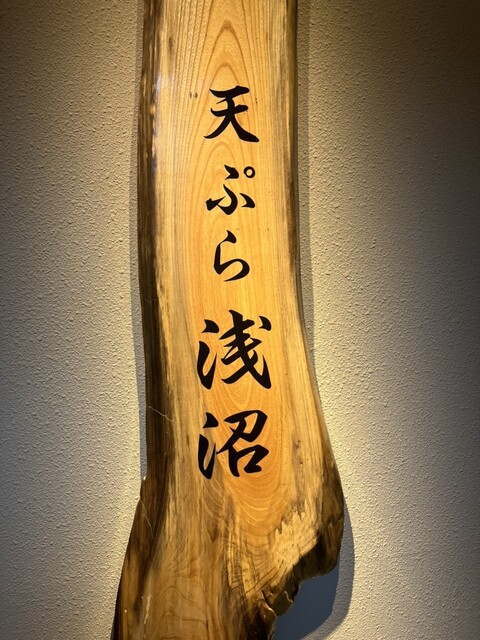 天ぷら浅沼